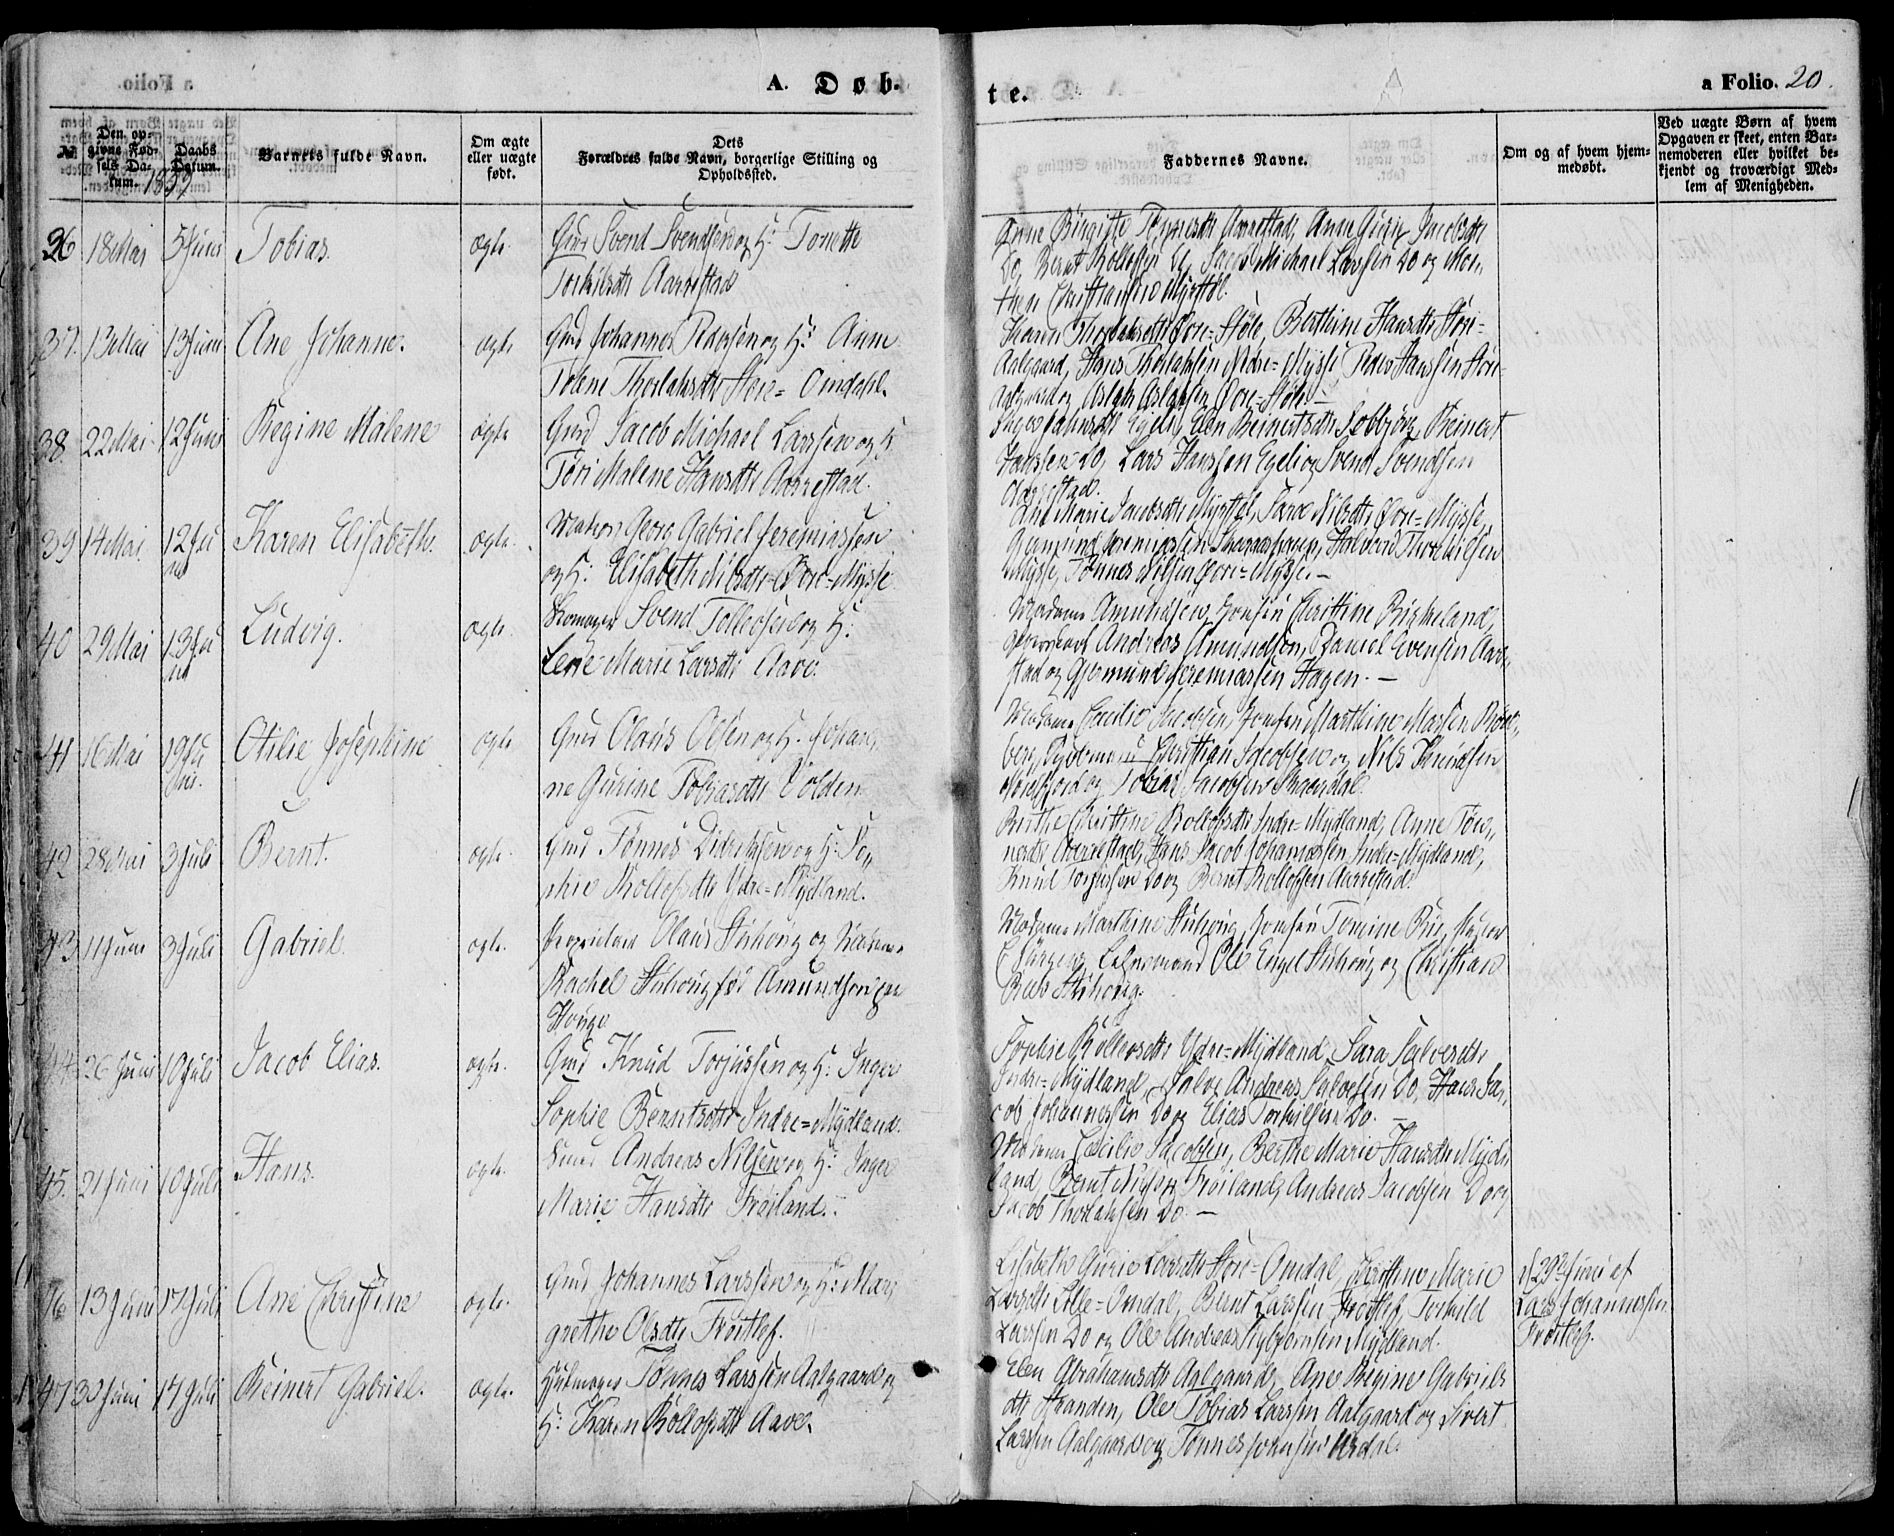 A. Døb
te.
a Folio. 20.
No.
Den opgivne Fødsels Datum.
Daabs Datum.
1859
Barnets fulde Navn.
Om ægte eller uægte født.
Dets Forældres fulde Navn, borgerlige Stilling og Opholdssted.
Faddernes Navne.
Om og af hvem hjemmedøbt.
Ved uægte Børn af hvem Opgaven er skeet, enten Barnemoderen eller hvilket bekjendt og troværdigt Medlem af Menigheden.
36 18 Mai 5 Juni Tobias. ægte. Gmd Svend Svendsen og H: Tonette
Torkilsdtr Aarrestad
Anne Birgitte Tønnesdtr Aarrestad, Anne Gurie Jacobsdtr
Do, Bernt Rollofsen Do, Jacob Michael Larssen Do og Mor-
then Christiansen Myrstøl.
37. 13 Mai 13 Juni Ane Johanne. ægte Gmd Johannes Pedersen og H: Anne
Tolene Thorlaksdtr Store-Omdahl.
Karen Thorlaksdtr Øvre-Støle, Berthine Hansdtr Store-
Aalgaard, Hans Thorlaksen Nedre-Mysse Peder Hanssen Store-
Aalgaard og Aslak Aslaksen Øvre-Støle.
38. 22 Mai 12 Juni Regine Malene ægte Gmd Jacob Michael Larssen og H
Tøri Malene Hansdtr Aarrestad.
Egeli, Elen Reinertsdtr, Reinert
Hanssen Do, Lars Hanssen Egeli og Svend Svendsen
Aarrestad.
39 14 Mai 12 Juni Karen Elisabeth. ægte. Georg Gabriel Jeremiassen
og H: Elisabeth Nilsdtr Øvre-Mysse
Ane Marie Jacobsdtr Myrstøl, Sara Nilsdtr Øvre-Mysse,
Gjemund Jeremiassen, Halvord Thorkilsen
Mysse, Tønnes Nilsen Øvre-Mysse. —
40 29 Mai 13 Juni Ludvig. ægte. Skomager Svend Tollevsen og H:
Lene Marie Larsdtr Aave.
Madame Amundsen, Jomfru Christine Birkeland,
Andreas Amundson, Daniel Evensen Aarre-
stad og Gjemund Jeremiassen Hagen. —
41 16 Mai 19 Juni. Otilie Josephine ægte Gmd Olaus Olsen og H. Johan-
ne Gurine Tobiasdtr Volden
Madame Cæcilie Jacobsen, Jomfru Marthine
Christian Jacobsen og Nils Knudsen
og Tobias Jacobsen
42 28 Mai 3 Juli Bernt. ægte. Gmd Tønnes Didriksen og H: So-
phie Rollofsdtr Ydre-Mydland.
Berthe Christine Rollofsdtr Indre-Mydland, Anne Tøn-
nesdtr Aarrestad, Hans Jacob Johannessen Indre-Mydland,
Knud Torjussen Do og Bernt Rollofsen Aarrestad.
43 11 Juni 3 Juli Gabriel. ægte. Proprietair Olaus Stuhoug og Madame
Rachel Stuhoug fød Amundson paa
Houge
Madame Marthine Stuhoug, Jomfru Tomine
Lensmand Ole Engel Stuhoug og Christian
Stuhoug.
44 26 Juni 10 Juli Jacob Elias. ægte. Gmd Knud Torjussen og H: Inger
Sophie Berntsdtr Indre-Mydland.
Sophie Rollofsdtr Ydre-Mydland, Sara Salvesdtr
Indre-Mydland, Salve Andreas Salvesen Do, Hans Ja-
cob Johannessen Do og Elias Torkilsen Do. —
45. 21 Juni 10 Juli Hans. ægte. Andreas Nilsen og H: Inger
Marie Hansdtr Frøiland.
Madame Cæcilie Jacobsen, Berthe Marie Hansdtr Myd-
land, Bernt Nilsen Frøiland, Andreas Jacobsen Do og
Jacob Thorlaksen Do. —
46 13 Juni 17 Juli Ane Christine ægte. Gmd Johannes Larssen og H: Mar-
grethe Olsdtr Frøitlef.
Lisabeth Gurie Larsdtr Store-Omdal, Christine Marie
Larsdtr Lille-Omdal, Bernt Larssen Frøitlef, Torkild
Larssen Do og Ole Andreas Mydland.
d 29d Juni af
Lars Johannessen
Frøitlef.
47 30 Juni 17 Juli Reinert Gabriel. ægte. Hjulmager Tønnes Larssen Aalgaard og
H: Karen Rollofsdtr Aave.
Elen Abrahamsdtr Aalgaard, Ane Regine Gabriels
dtr Haanden, Ole Tobias Larssen Aalgaard og Sivert
Larssen Aalgaard og Tønnes Urdal.